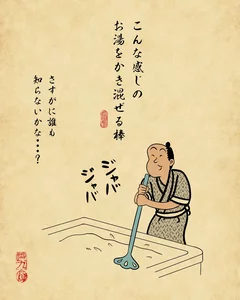 こんな感じの
お湯をかき混ぜる棒
さすがに誰も
知らないかな・・・?
ジャバ
ジャバ